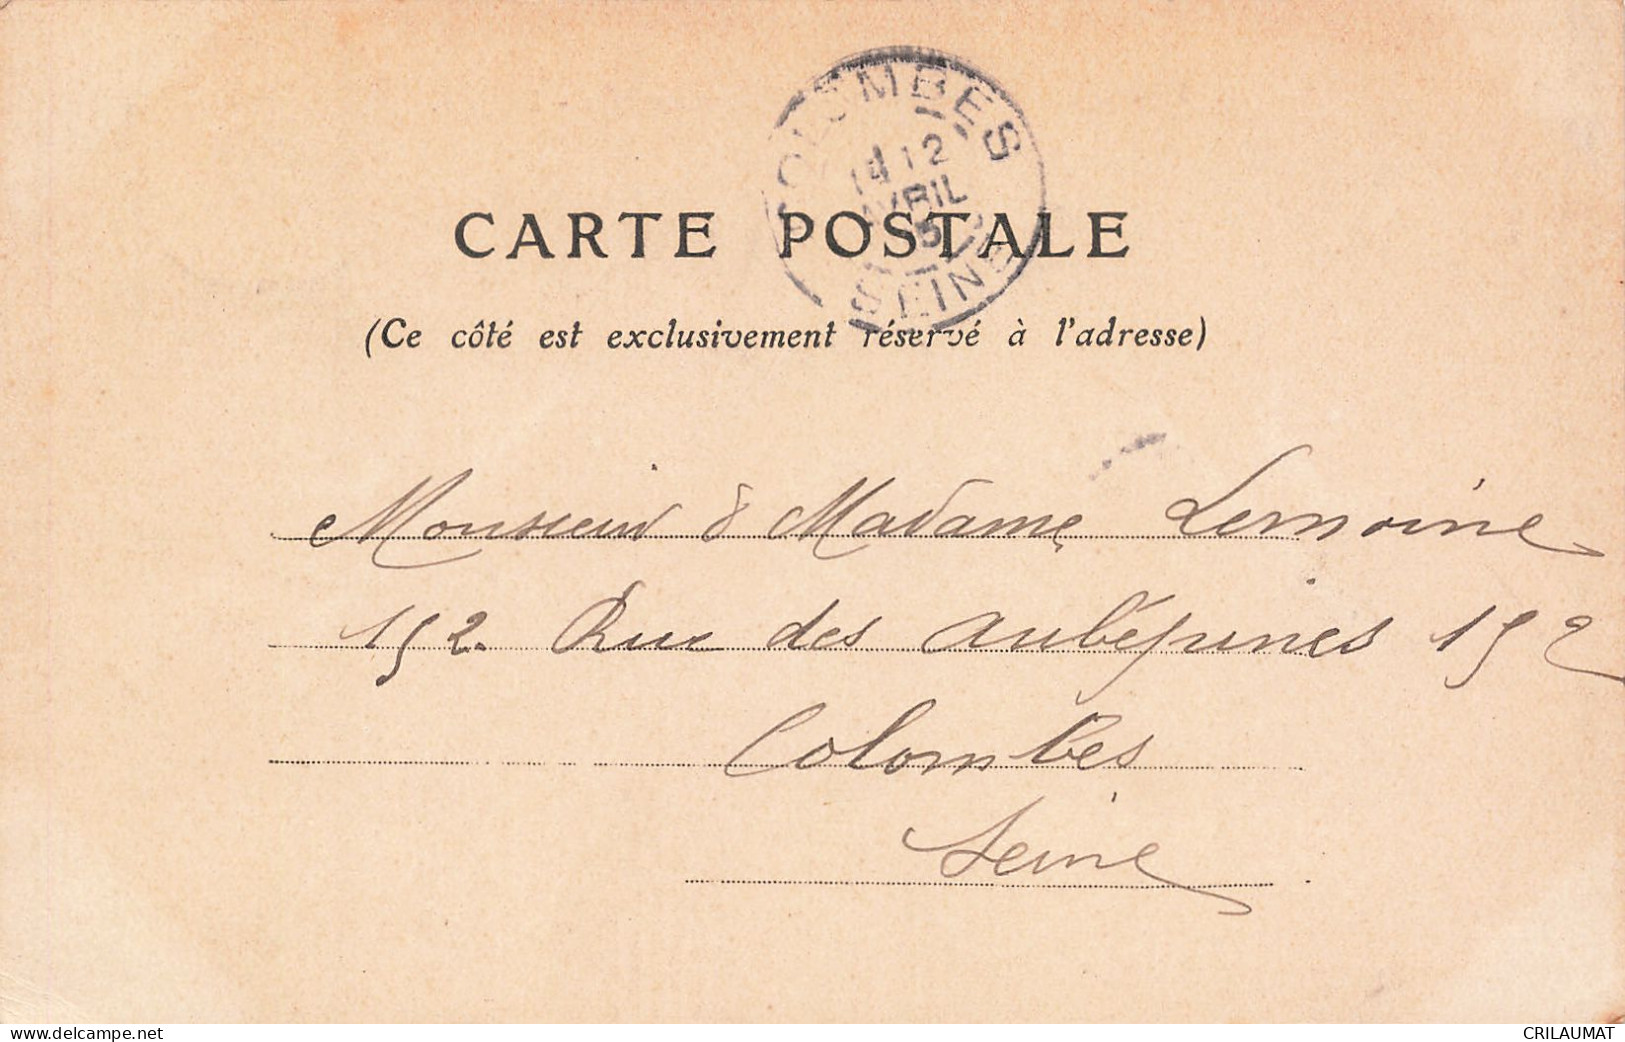 COLOMBES
12
AVRIL
SEINE
CARTE POSTALE
(Ce côté est exclusivement réservé à l'adresse)
Monsieur & Madame Lemoine
152. Rue des Aubépines 152
Colombes
Seine
www.delcampe.net
CRILAUMAT